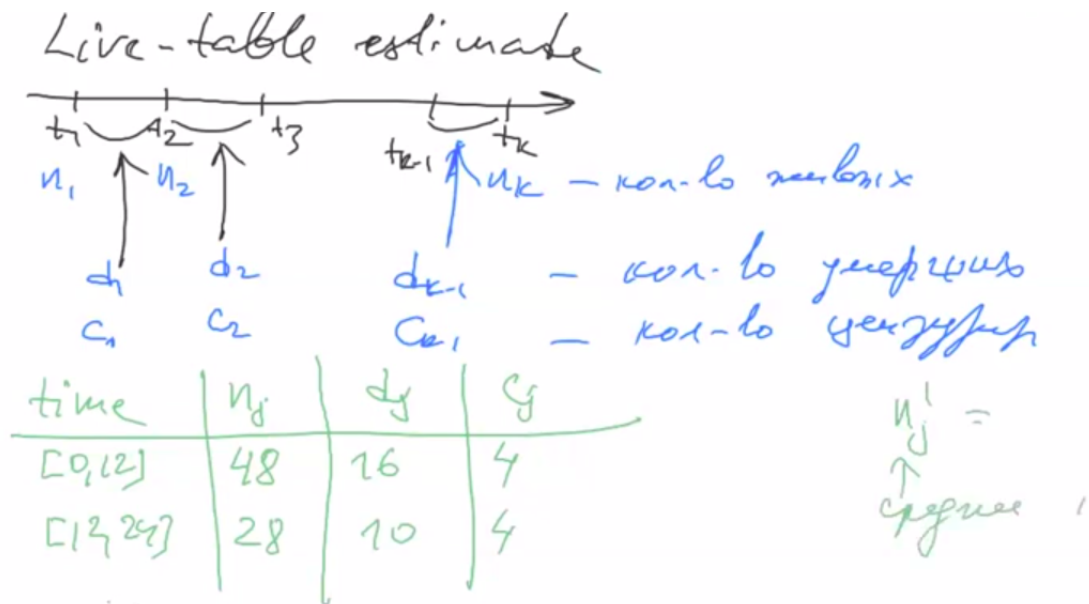 Live-table estimate
t₁ t₂ t₃ tₖ₋₁ tₖ
n₁ n₂ nₖ — кол-во живых
d₁ d₂ dₖ₋₁ — кол-во умерших
c₁ c₂ cₖ₋₁ — кол-во цензурир
time nⱼ dⱼ cⱼ
[0,12] 48 16 4
[12,24] 28 10 4
nⱼ' =
↑
среднее